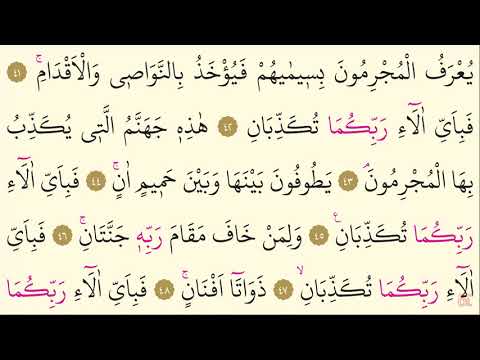 يُعْرَفُ الْمُجْرِمُونَ بِسٖيمٰيهُمْ فَيُؤْخَذُ بِالنَّوَاصٖى وَالْاَقْدَامِۚ ﴿٤١﴾
فَبِاَيِّ اٰلَٓاءِ رَبِّكُمَا تُكَذِّبَانِ ﴿٤٢﴾ هٰذِهٖ جَهَنَّمُ الَّتٖى يُكَذِّبُ
بِهَا الْمُجْرِمُونَۘ ﴿٤٣﴾ يَطُوفُونَ بَيْنَهَا وَبَيْنَ حَمٖيمٍ اٰنٍۚ ﴿٤٤﴾ فَبِاَيِّ اٰلَٓاءِ
رَبِّكُمَا تُكَذِّبَانِࣖ ﴿٤٥﴾ وَلِمَنْ خَافَ مَقَامَ رَبِّهٖ جَنَّتَانِۚ ﴿٤٦﴾ فَبِاَيِّ
اٰلَٓاءِ رَبِّكُمَا تُكَذِّبَانِۙ ﴿٤٧﴾ ذَوَاتَٓا اَفْنَانٍۚ ﴿٤٨﴾ فَبِاَيِّ اٰلَٓاءِ رَبِّكُمَا